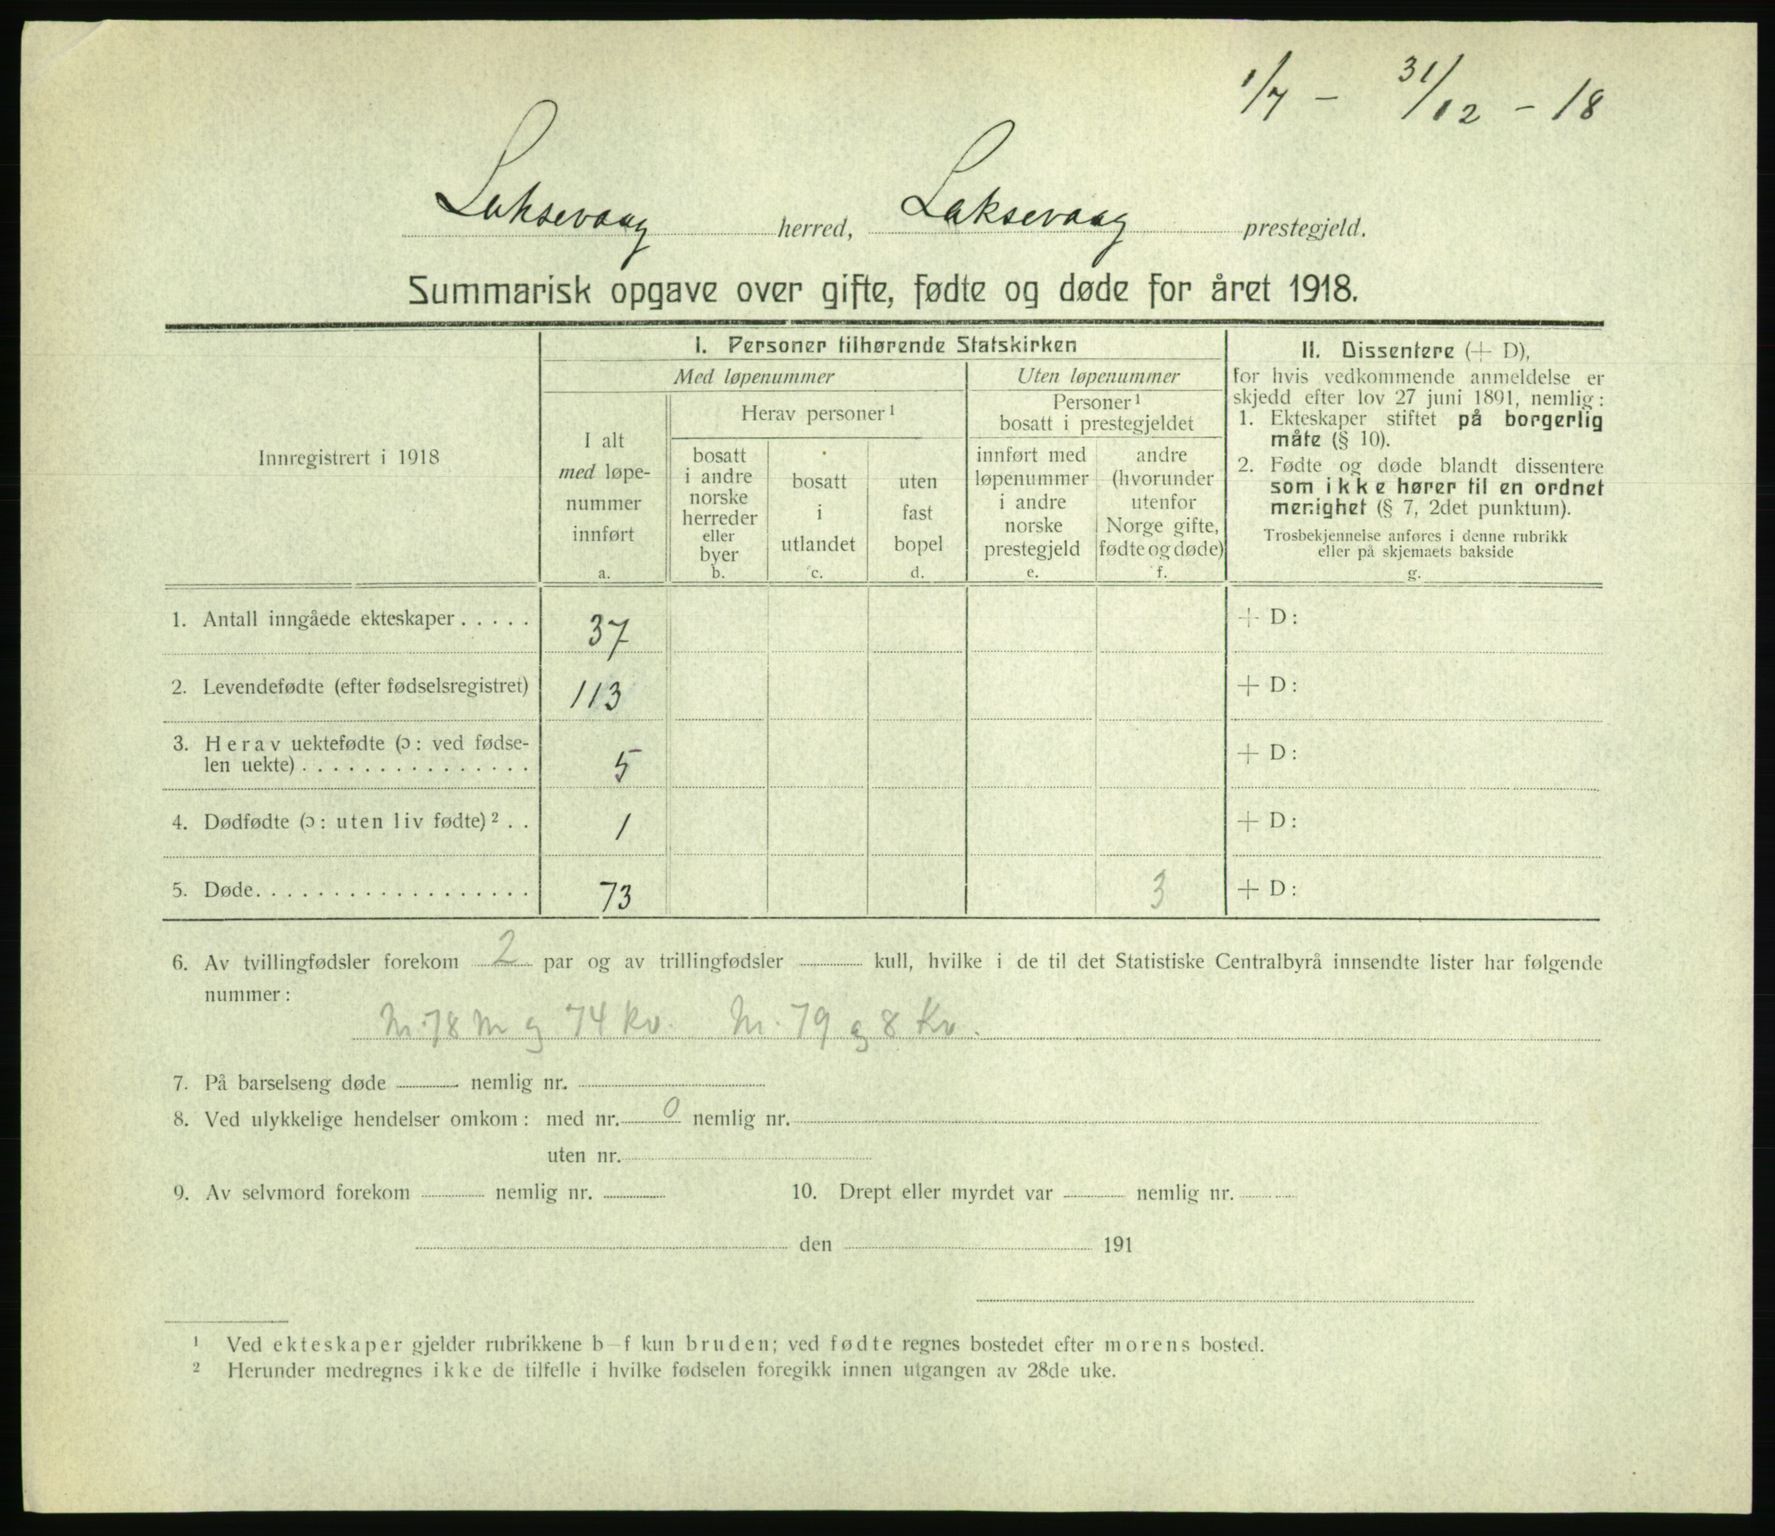 1/7 – 31/12 – 18
Laksevaag herred, Laksevaag prestegjeld.
Summarisk opgave over gifte, fødte og døde for året 1918.
Innregistrert i 1918
I. Personer tilhørende Statskirken
Med løpenummer
Uten løpenummer
I alt
med løpe-
nummer
innført
a.
Herav personer ¹
bosatt
i andre
norske
herreder
eller
byer
b.
bosatt
i
utlandet
c.
uten
fast
bopel
d.
Personer ¹
bosatt i prestegjeldet
innført med
løpenummer
i andre
norske
prestegjeld
e.
andre
(hvorunder
utenfor
Norge gifte,
fødte og døde)
f.
II. Dissentere (+ D),
for hvis vedkommende anmeldelse er
skjedd efter lov 27 juni 1891, nemlig:
1. Ekteskaper stiftet på borgerlig
måte (§ 10).
2. Fødte og døde blandt dissentere
som ikke hører til en ordnet
menighet (§ 7, 2det punktum).
Trosbekjennelse anføres i denne rubrikk
eller på skjemaets bakside
g.
1. Antall inngåede ekteskaper . . . . . 37 + D:
2. Levendefødte (efter fødselsregistret) 113 + D:
3. Herav uektefødte (ɔ: ved fødse-
len uekte) . . . . . . . . . . . . . . . 5 + D:
4. Dødfødte (ɔ: uten liv fødte) ² . . 1 + D:
5. Døde. . . . . . . . . . . . . . . . . . 73 3 + D:
6. Av tvillingfødsler forekom 2 par og av trillingfødsler kull, hvilke i de til det Statistiske Centralbyrå innsendte lister har følgende
nummer:
Nr. 78 M og 74 Kv. Nr. 79 og 8 Kv.
7. På barselseng døde nemlig nr.
8. Ved ulykkelige hendelser omkom: med nr. 0 nemlig nr.
uten nr.
9. Av selvmord forekom nemlig nr. 10. Drept eller myrdet var nemlig nr.
den 191
¹ Ved ekteskaper gjelder rubrikkene b–f kun bruden; ved fødte regnes bostedet efter morens bosted.
² Herunder medregnes ikke de tilfelle i hvilke fødselen foregikk innen utgangen av 28de uke.